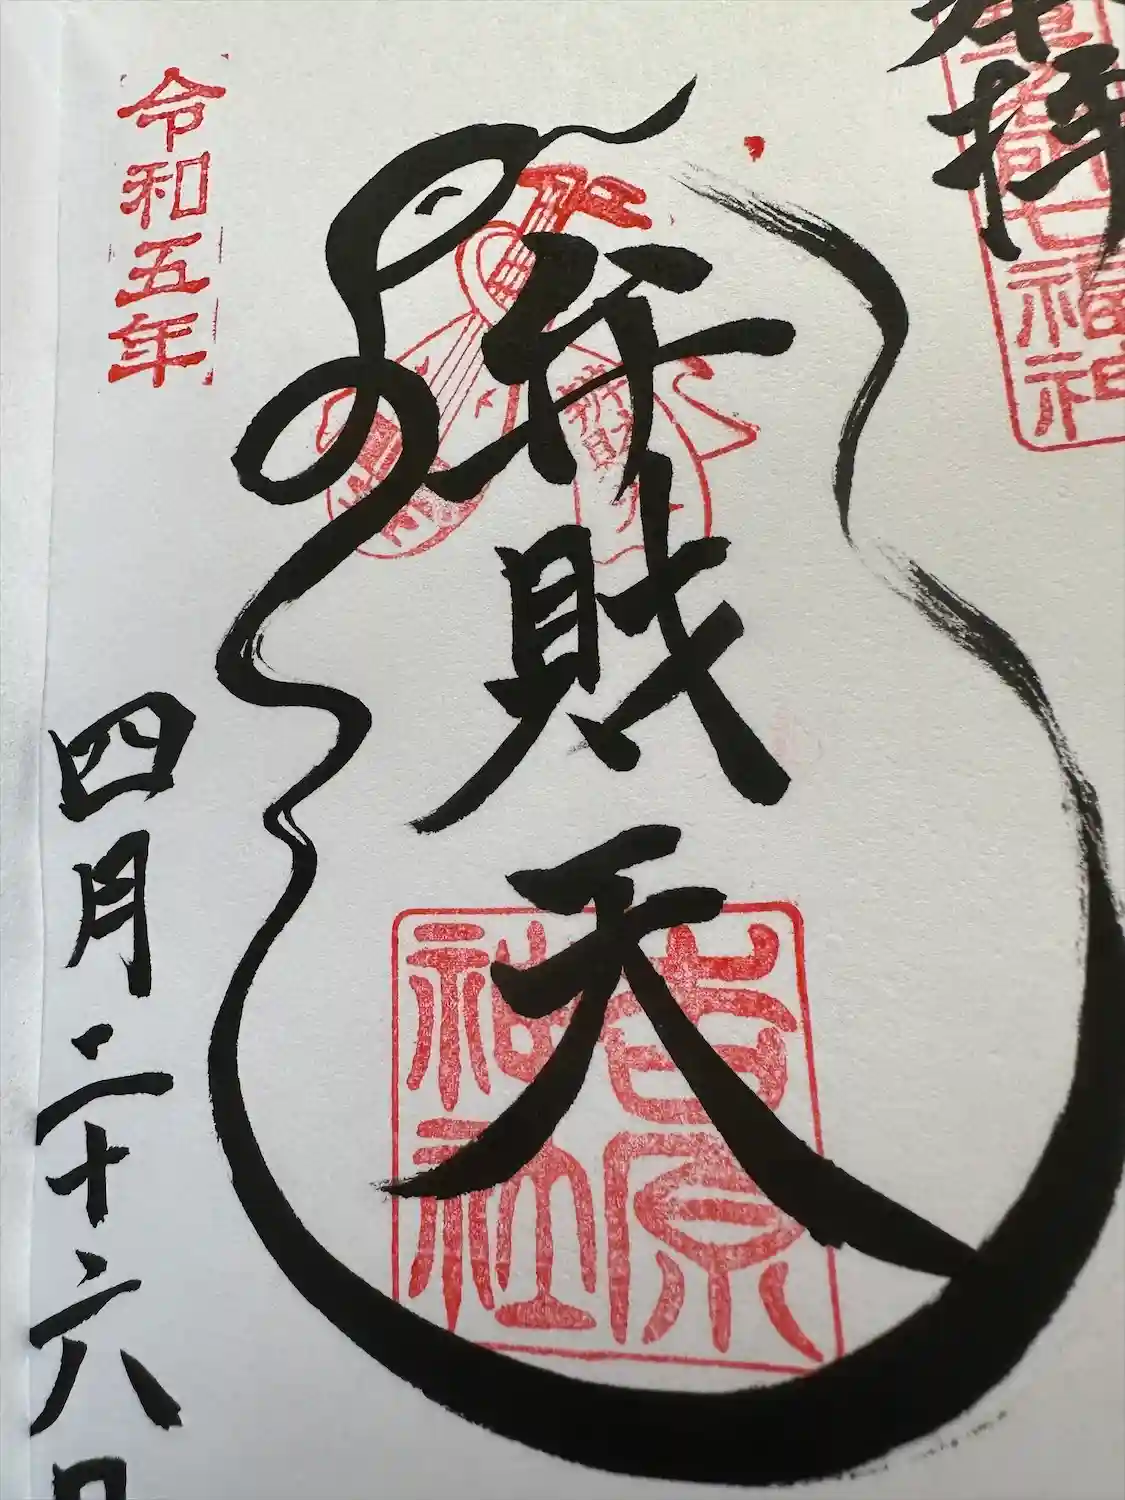 奉拝
七福神
弁財天
吉原神社
令和五年
四月二十六日